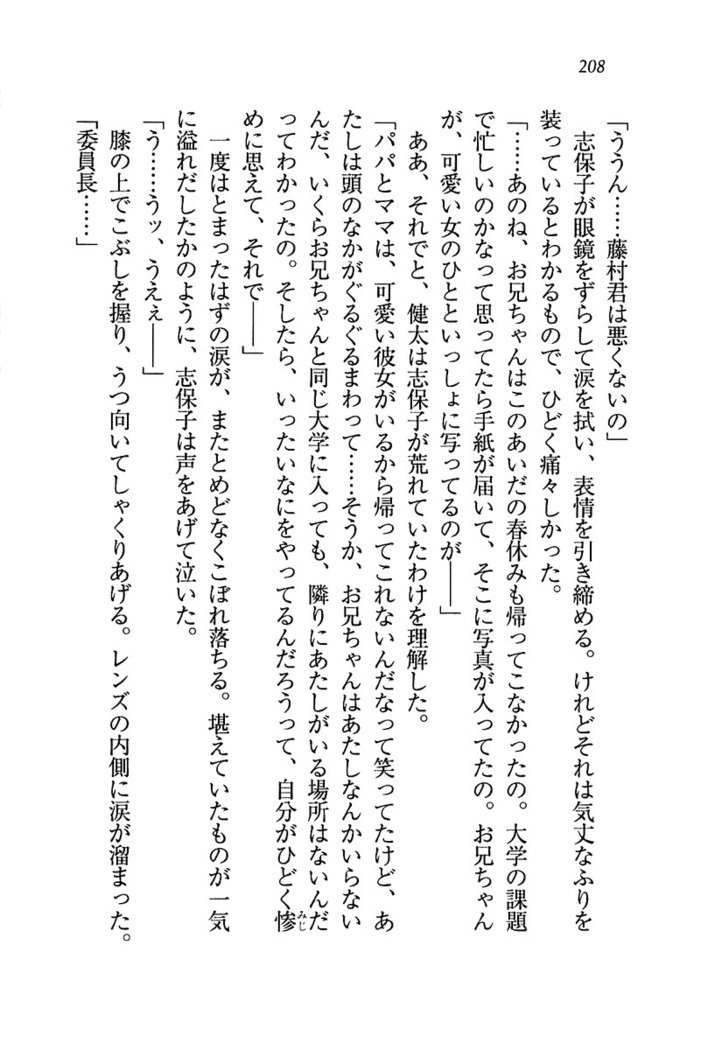 208
「ううん……藤村君は悪くないの」
　志保子が眼鏡をずらして涙を拭い、表情を引き締める。けれどそれは気丈なふりを
装っているとわかるもので、ひどく痛々しかった。
「……あのね、お兄ちゃんはこのあいだの春休みも帰ってこなかったの。大学の課題
で忙しいのかなって思ってたら手紙が届いて、そこに写真が入ってたの。お兄ちゃん
が、可愛い女のひとといっしょに写ってるのが――」
　ああ、それでと、健太は志保子が荒れていたわけを理解した。
「パパとママは、可愛い彼女がいるから帰ってこれないんだなって笑ってたけど、あ
たしは頭のなかがぐるぐるまわって……そうか、お兄ちゃんはあたしなんかいらない
んだ、いくらお兄ちゃんと同じ大学に入っても、隣りにあたしがいる場所はないんだ
ってわかったの。そしたら、いったいなにをやってるんだろうって、自分がひどく惨みじ
めに思えて、それで――」
　一度はとまったはずの涙が、またとめどなくこぼれ落ちる。堪えていたものが一気
に溢れだしたかのように、志保子は声をあげて泣いた。
「う……うッ、うえぇ――」
　膝の上でこぶしを握り、うつ向いてしゃくりあげる。レンズの内側に涙が溜まった。
「委員長……」